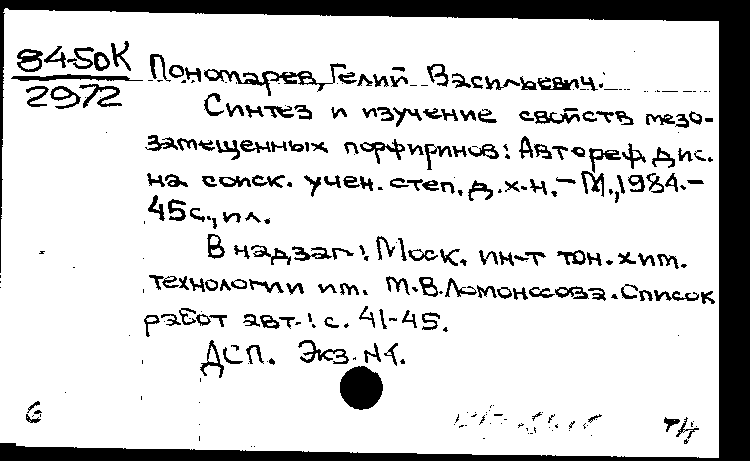 84-50К
2972
Пономарев, Гелий Васильевич.
Синтез и изучение свойств мезо-
замещенных порфиринов: Автореф. дис.
на соиск. учен. степ. д.х.н. - М., 1984. -
45 с., ил.
В надзаг.: Моск. ин-т тон. хим.
технологии им. М.В.Ломоносова. Список
работ авт.: с. 41-45.
ДСП. Экз. N1.
6